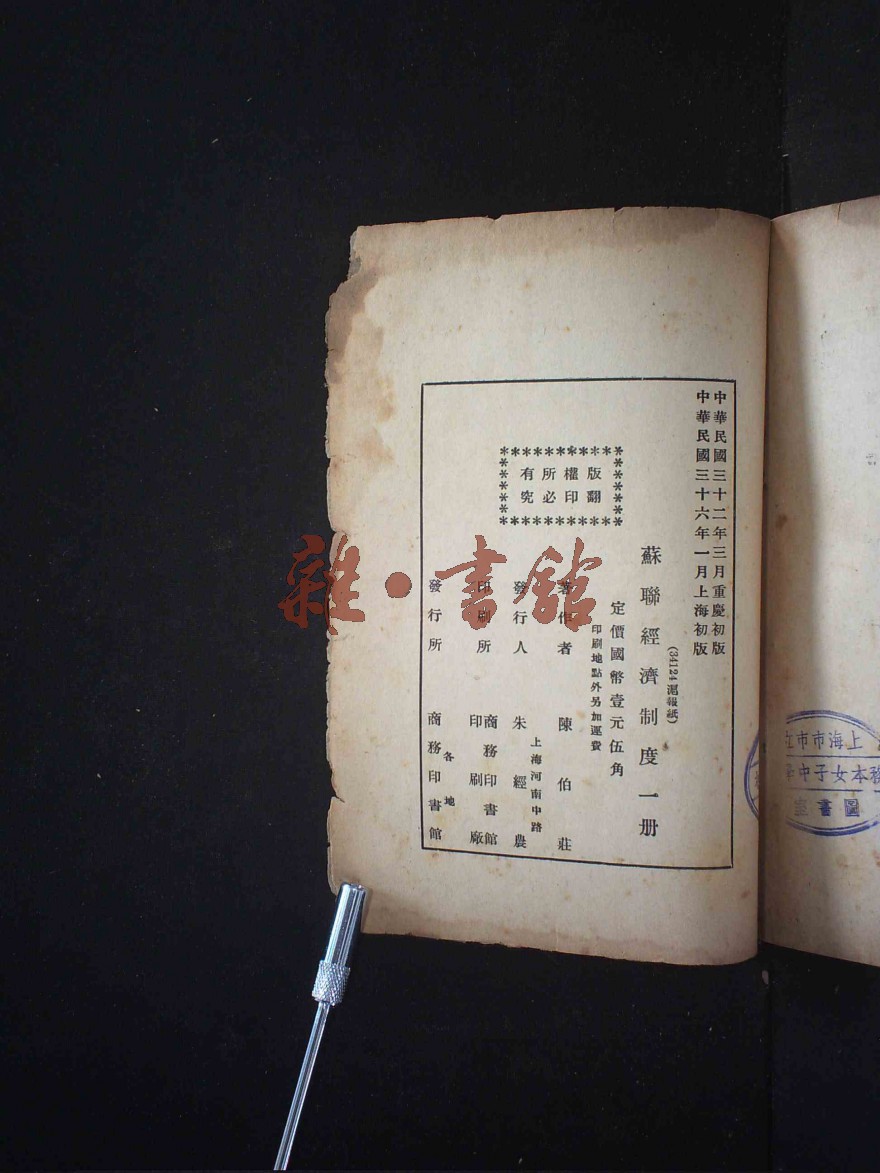 中華民國三十二年三月重慶初版
中華民國三十六年一月上海初版
(34124滬報紙)
蘇聯經濟制度一册
定價國幣壹元伍角
印刷地點外另加運費
版權所有
翻印必究
著作者 陳伯莊
發行人 朱經農
上海河南中路
印刷所 商務印書館
印刷廠
發行所 各地
商務印書館
雜·書館
上海市市立
務本女子中學
圖書室